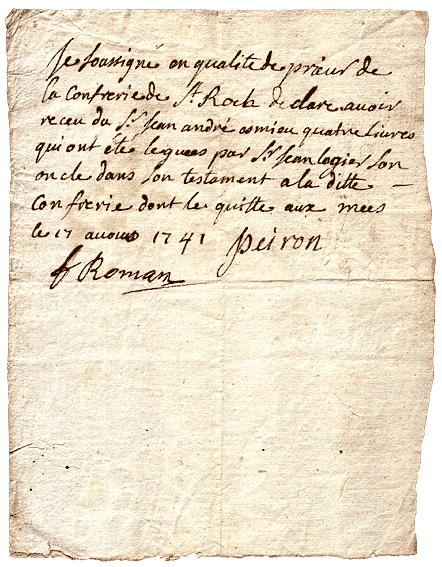 Je soussigné en qualité de prieur de
la Confrerie de St Roch declare avoir
receu du Sr Jean andré esmiou quatre Livres
qui ont été leguées par Sr Jean logier son
oncle dans son testament a la ditte
Confrerie dont le quitte aux mees
le 17 avous 1741 peiron
f Roman